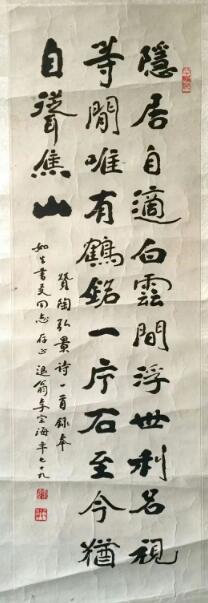 隱居自適白雲間浮世利名視
等閒唯有鶴銘一片石至今猶
自聳焦山
贊陶弘景詩一首録奉
如生書友同志存正退翁李空海年七十九